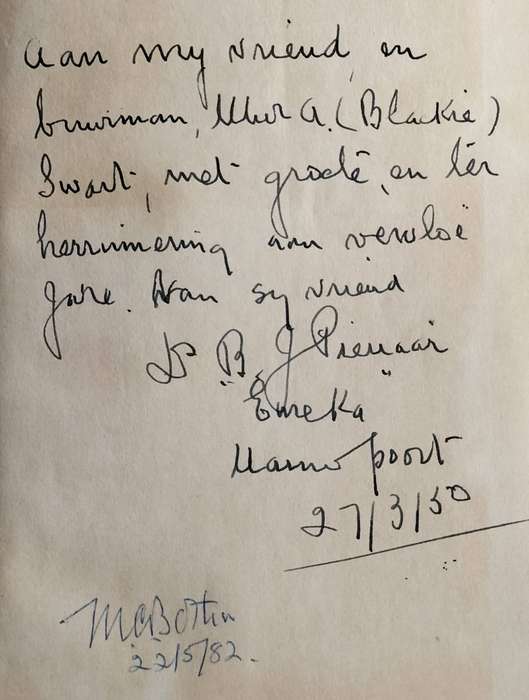 Aan my vriend en
buurman, Mnr A. (Blackie)
Swart, met groete, en ter
herrinnering aan vervloë
jare. Van sy vriend
Ds B J Pienaar
"Eureka"
poort
27/3/50
M C Botha
22/5/82.